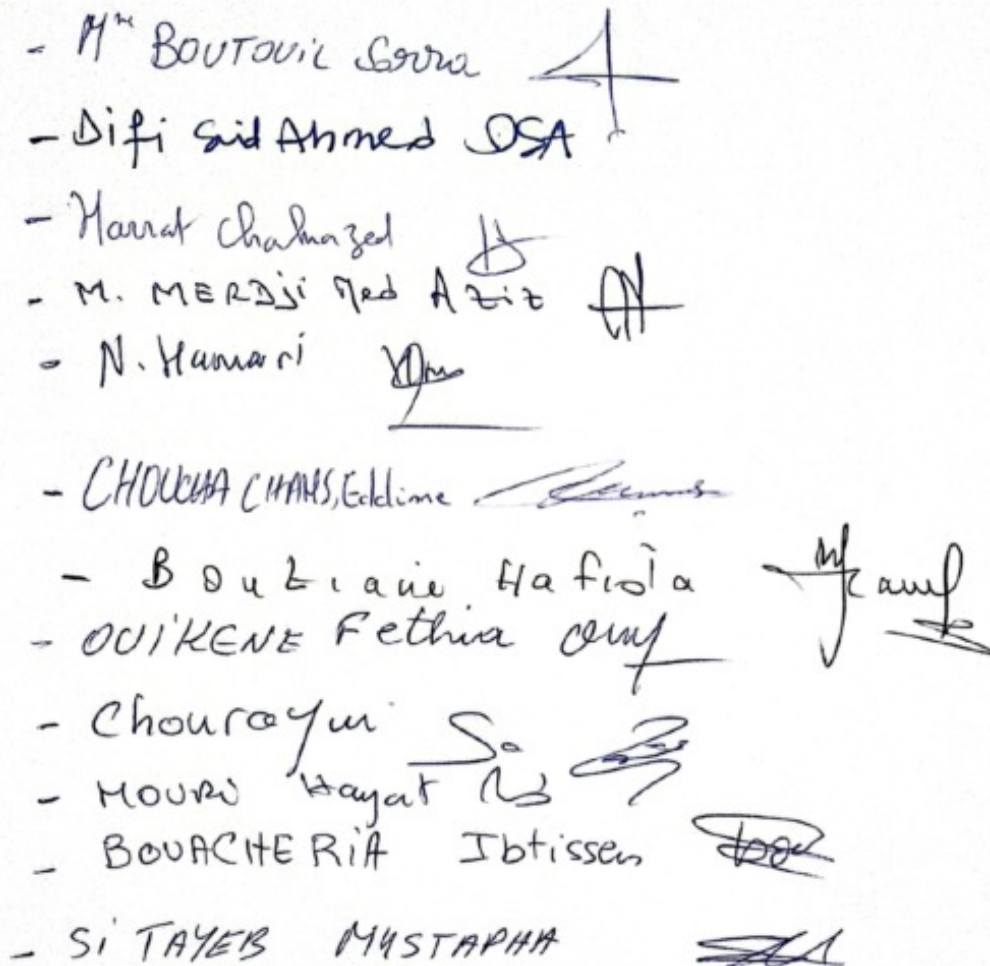 - Mme BOUTOUIL Sarra
- Difi Said Ahmed DSA
- Harrat Chahrazed
- M. MERDJi Med Aziz
- N. Hamari
- CHOUCHA CHAMS,Eddime
- Bouziane Hafida
- OUiKENE Fethia
- Chouraqui
- MOURi Hayat
- BOUACHERiA Ibtissem
- Si TAYEB MUSTAPHA